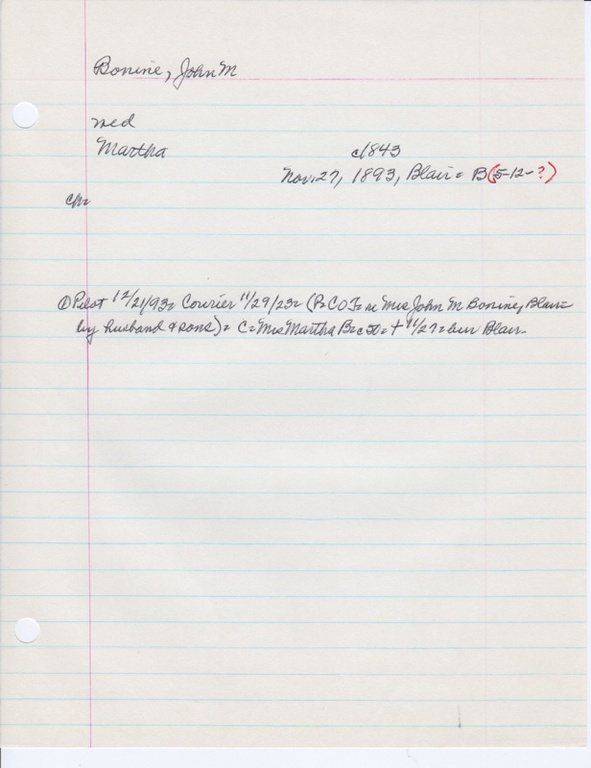 Bonine, John M
med
Martha c1843
Nov. 27, 1893, Blair = B(5-12-?)
chr
① Pilot 12/21/93 = Courier 11/29/23 = (P = C O T = re Mrs John M Bonine, Blair =
by husband & sons) = C = Mrs Martha B = c50 = + 11/27 = bur Blair -